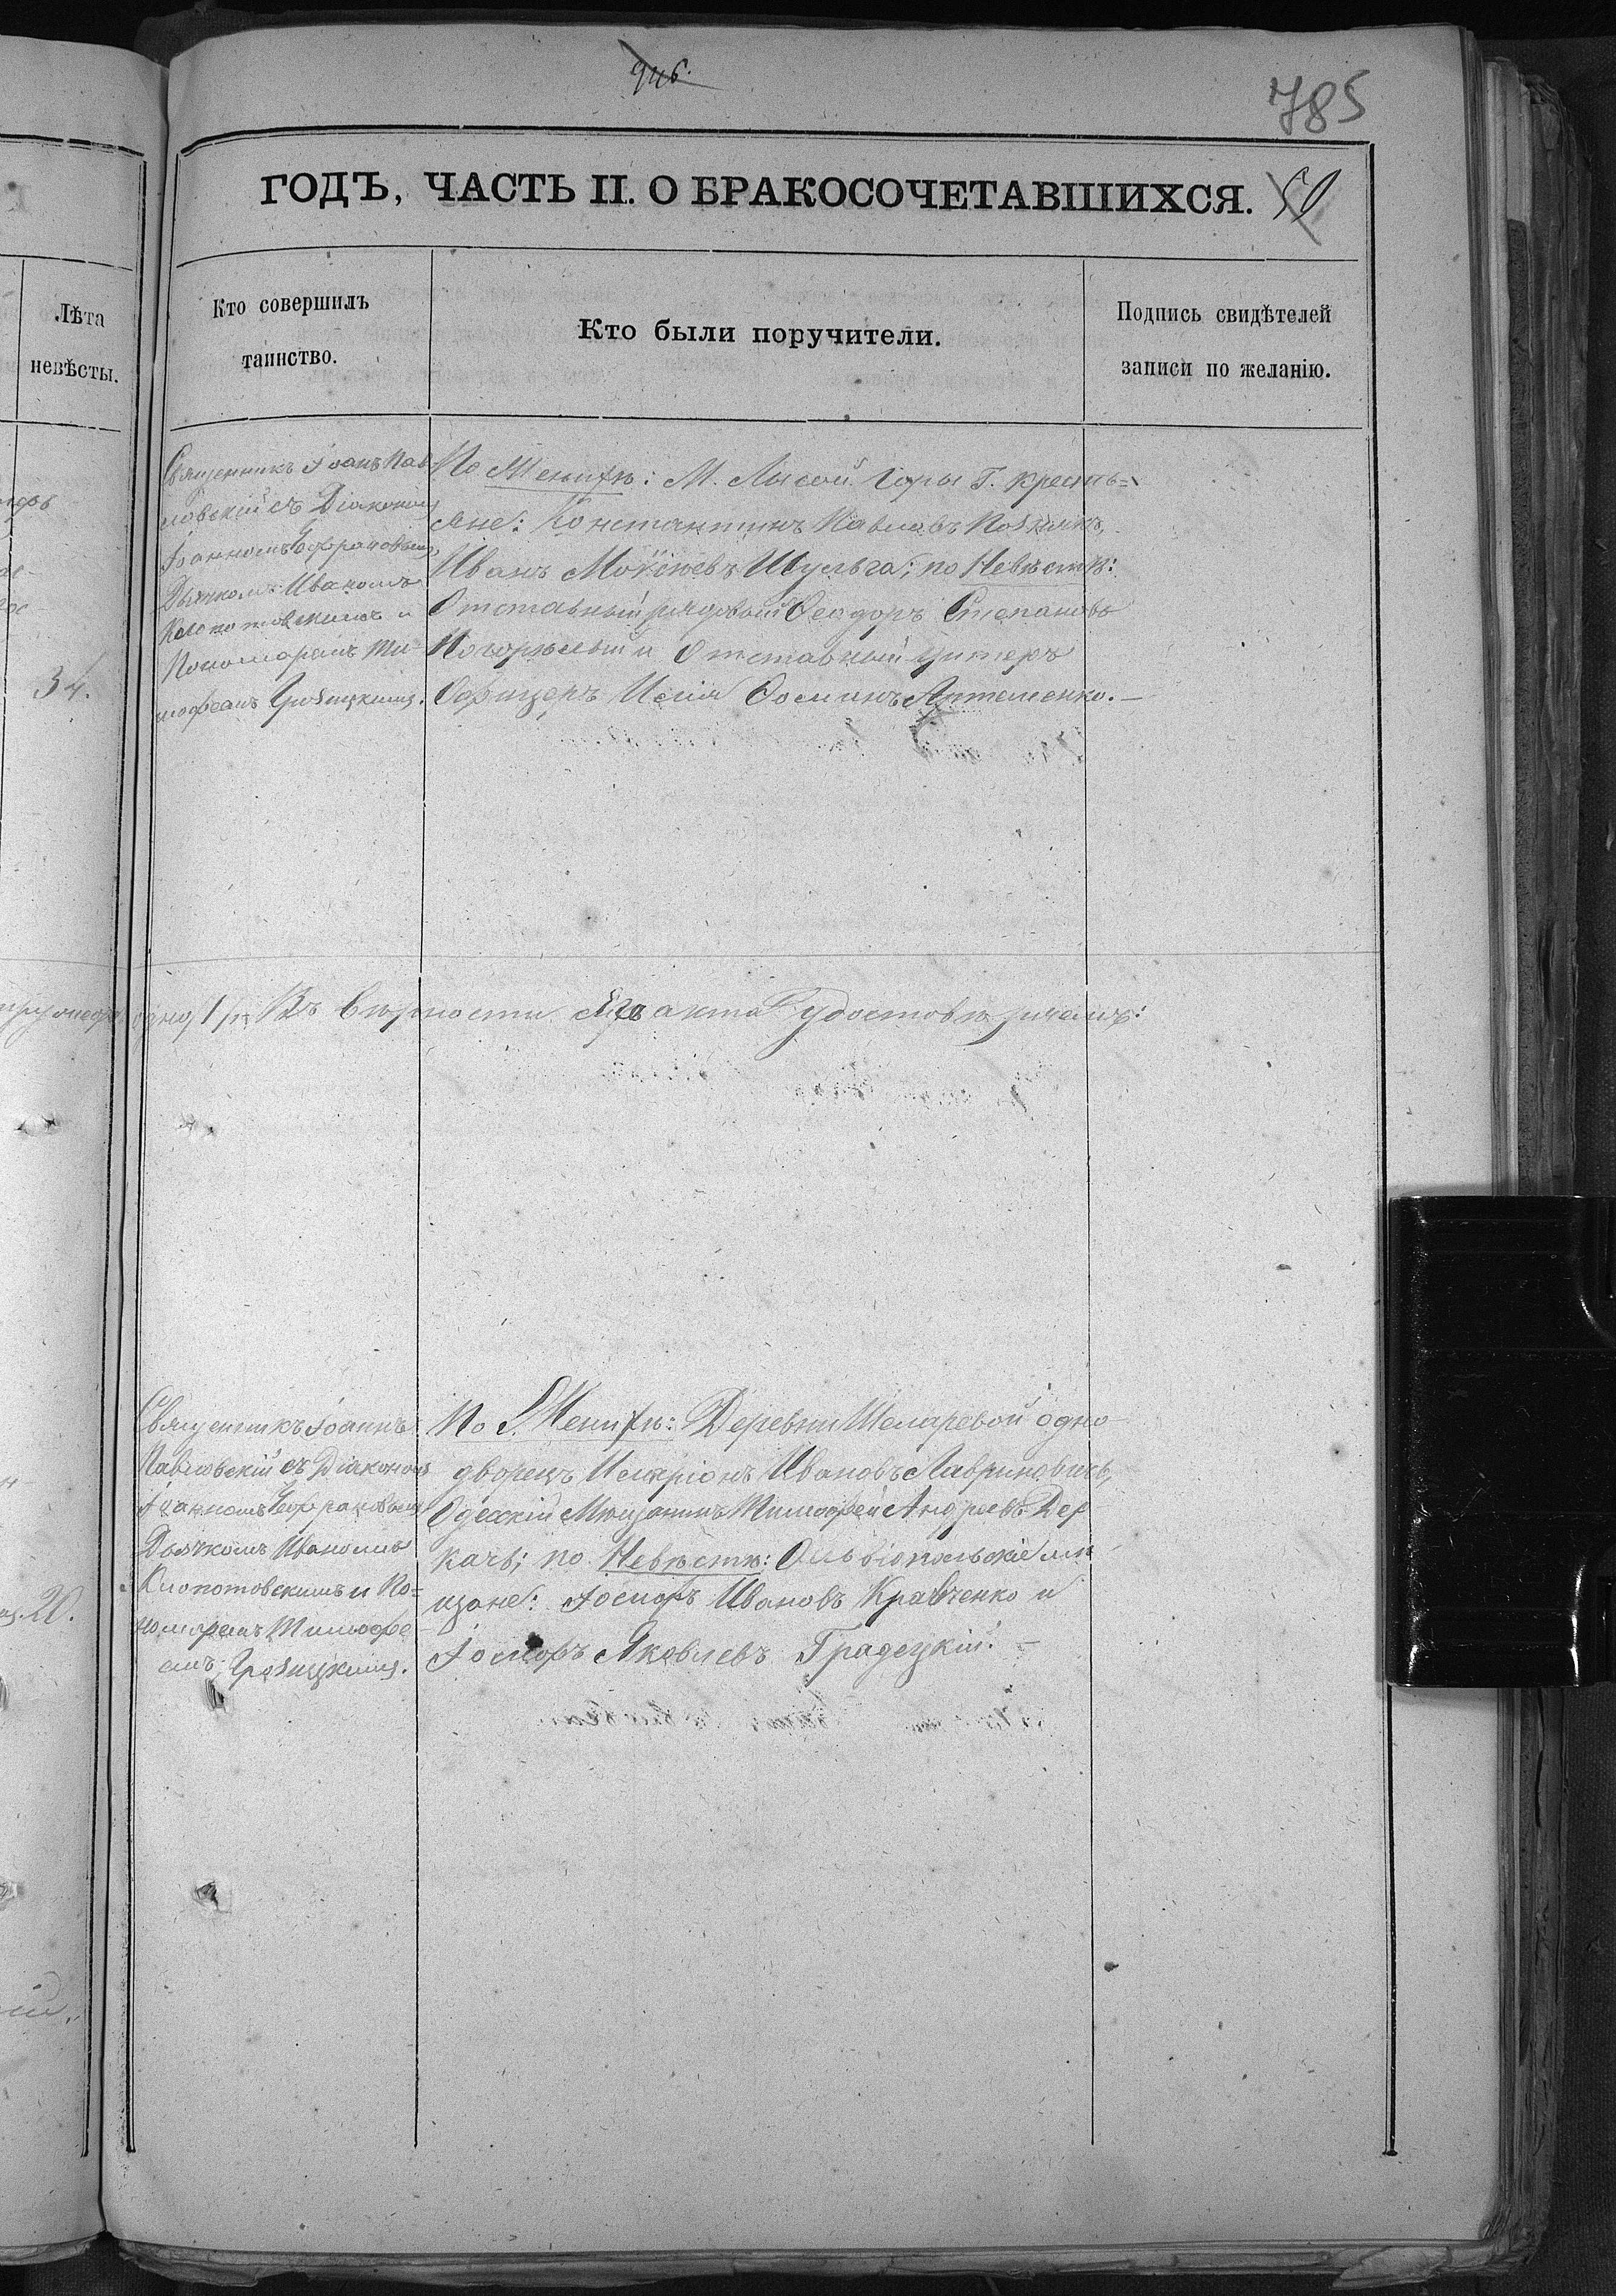 946.
785
ГОДЪ, ЧАСТЬ II. О БРАКОСОЧЕТАВШИХСЯ. 50
Лѣта
невѣсты.
Кто совершилъ
таинство.
Кто были поручители.
Подпись свидѣтелей
записи по желанію.
34.
Священникъ Іоаннъ Пав
ловскій съ Діакономъ
Іоанномъ
Дьячкомъ Иваномъ
Клопотовскимъ и
Пономаремъ Ти-
мофеемъ Грозицкимъ.
По Женихѣ: М. Лысой Горы Г. кресть=
яне: Константинъ Павловъ
Иванъ Шульга; по Невѣстѣ:
Отставный рядовый Ѳеодоръ Степановъ
Погорѣлый и Отставный Унтеръ
Офицеръ Исаія Ѳоминъ Артеменко.—
Въ вѣрности акта удостовѣряемъ:
20.
Священникъ Іоаннъ
Павловскій съ Діакономъ
Іоанномъ
Дьячкомъ Иваномъ
Клопотовскимъ и По=
номаремъ Тимофе
емъ Грозицкимъ.
По Женихѣ: Деревни одно
дворецъ Иларіонъ Ивановъ Лавриновичъ,
Одесскій Мѣщанинъ Тимофей Андреевъ Дер
качъ; по Невѣстѣ: Ольвіопольскіе мѣ
щане: Іосифъ Ивановъ Кравченко и
Іосифъ Яковлевъ Градецкій. —